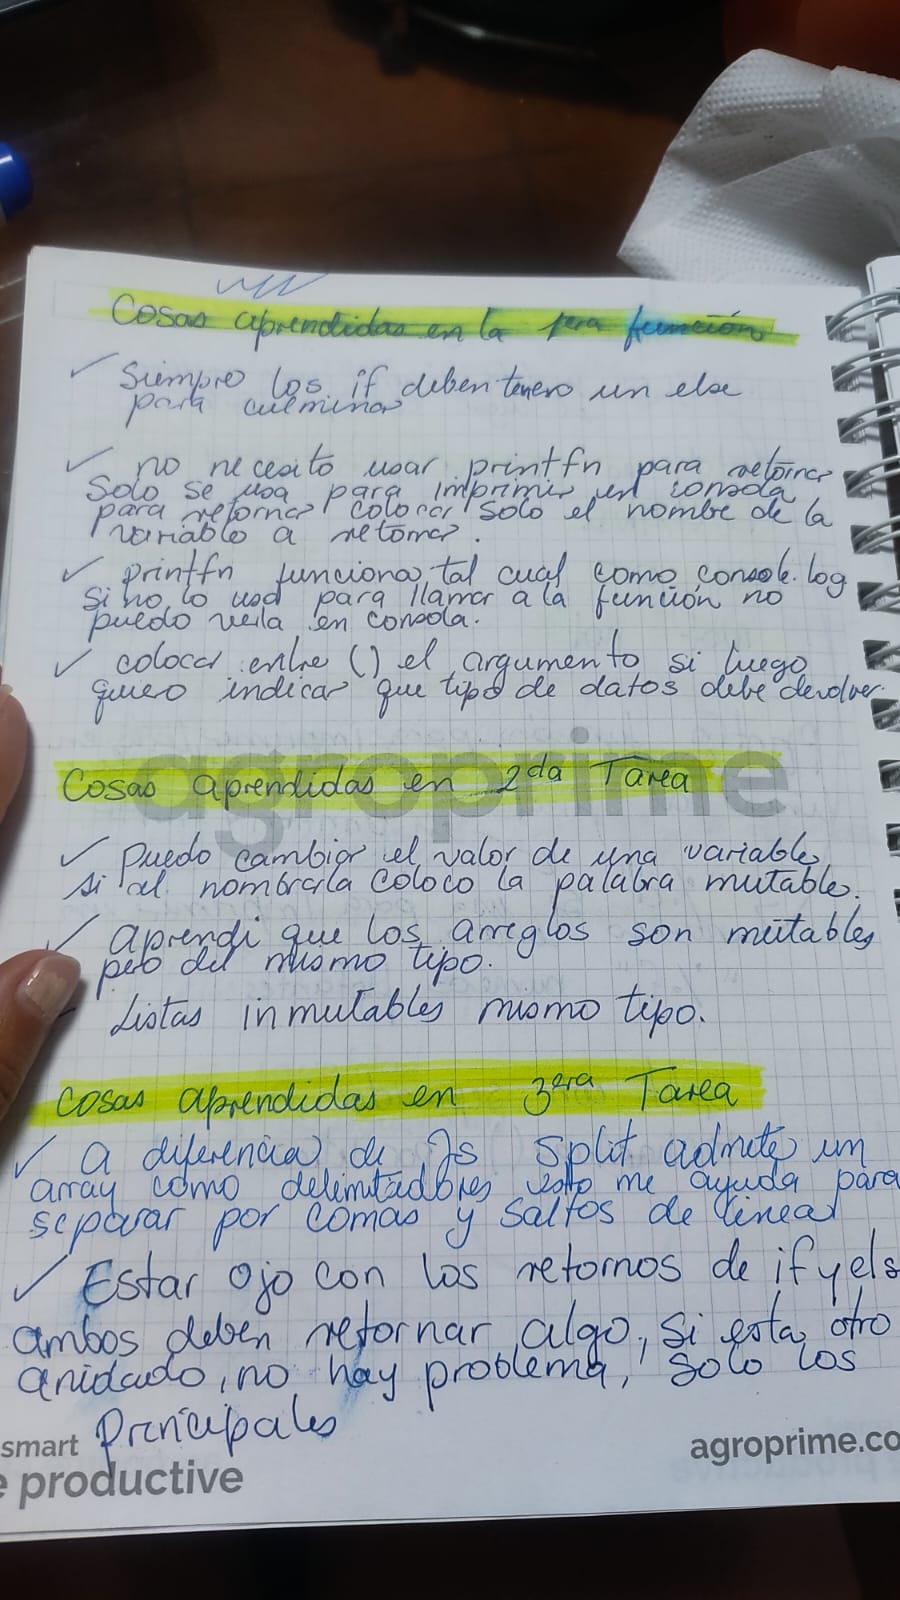 Cosas aprendidas en la 1era función
✓ Siempre los if deben tener un else
para culminar
✓ no necesito usar printfn para retornar
Solo se usa para imprimir en consola
para retornar colocar solo el nombre de la
variable a retornar.
✓ printfn funciona tal cual como console.log
Si no lo uso para llamar a la función no
puedo verla en consola.
✓ colocar entre () el argumento si luego
quiero indicar que tipo de datos debe devolver.
agroprime
Cosas aprendidas en 2da Tarea
✓ Puedo cambiar el valor de una variable
si al nombrarla coloco la palabra mutable.
✓ Aprendi que los arreglos son mutables
pero del mismo tipo.
Listas inmutables mismo tipo.
Cosas aprendidas en 3era Tarea
✓ A diferencia de Js split admite un
array como delimitadores esto me ayuda para
separar por comas y saltos de linea
✓ Estar ojo con los retornos de if y els
ambos deben retornar algo, si esta otro
anidado, no hay problema, solo los
Principales
smart
e productive
agroprime.co